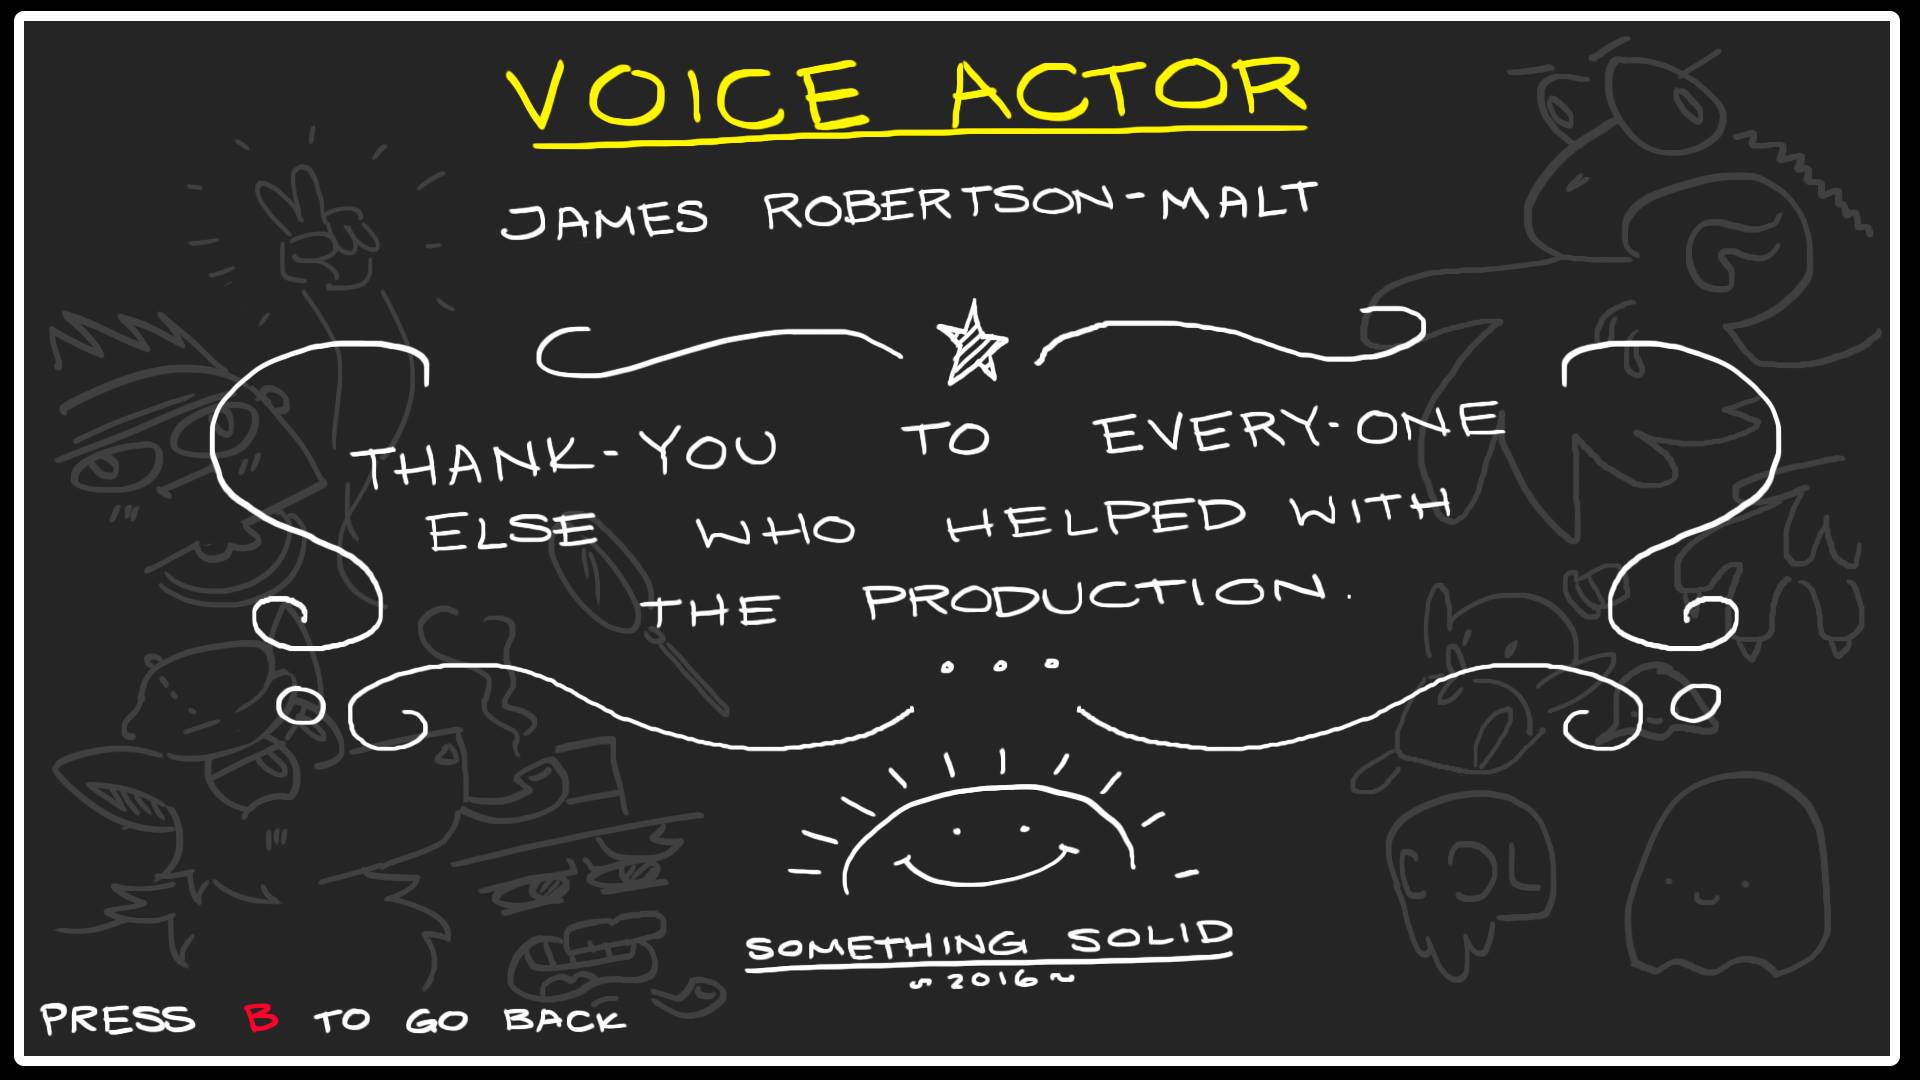 VOICE ACTOR
JAMES ROBERTSON-MALT
THANK-YOU TO EVERY-ONE
ELSE WHO HELPED WITH
THE PRODUCTION.
...
SOMETHING SOLID
~2016~
PRESS B TO GO BACK